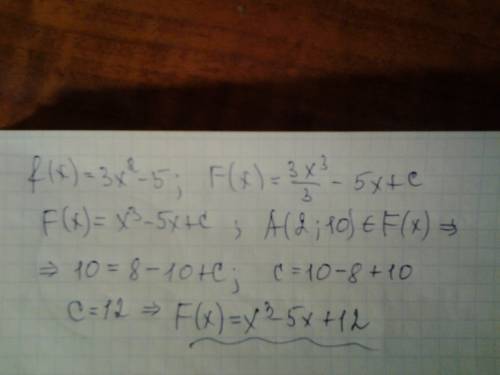 f(x)=3x²-5; F(x)=3x³/3-5x+c
F(x)=x³-5x+c; A(2;10)∈F(x)⇒
⇒10=8-10+c; c=10-8+10
c=12⇒F(x)=x³-5x+12